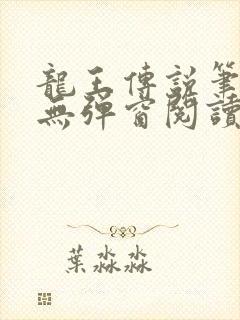 龍王傳説筆
無彈窗閱讀
葉淼淼